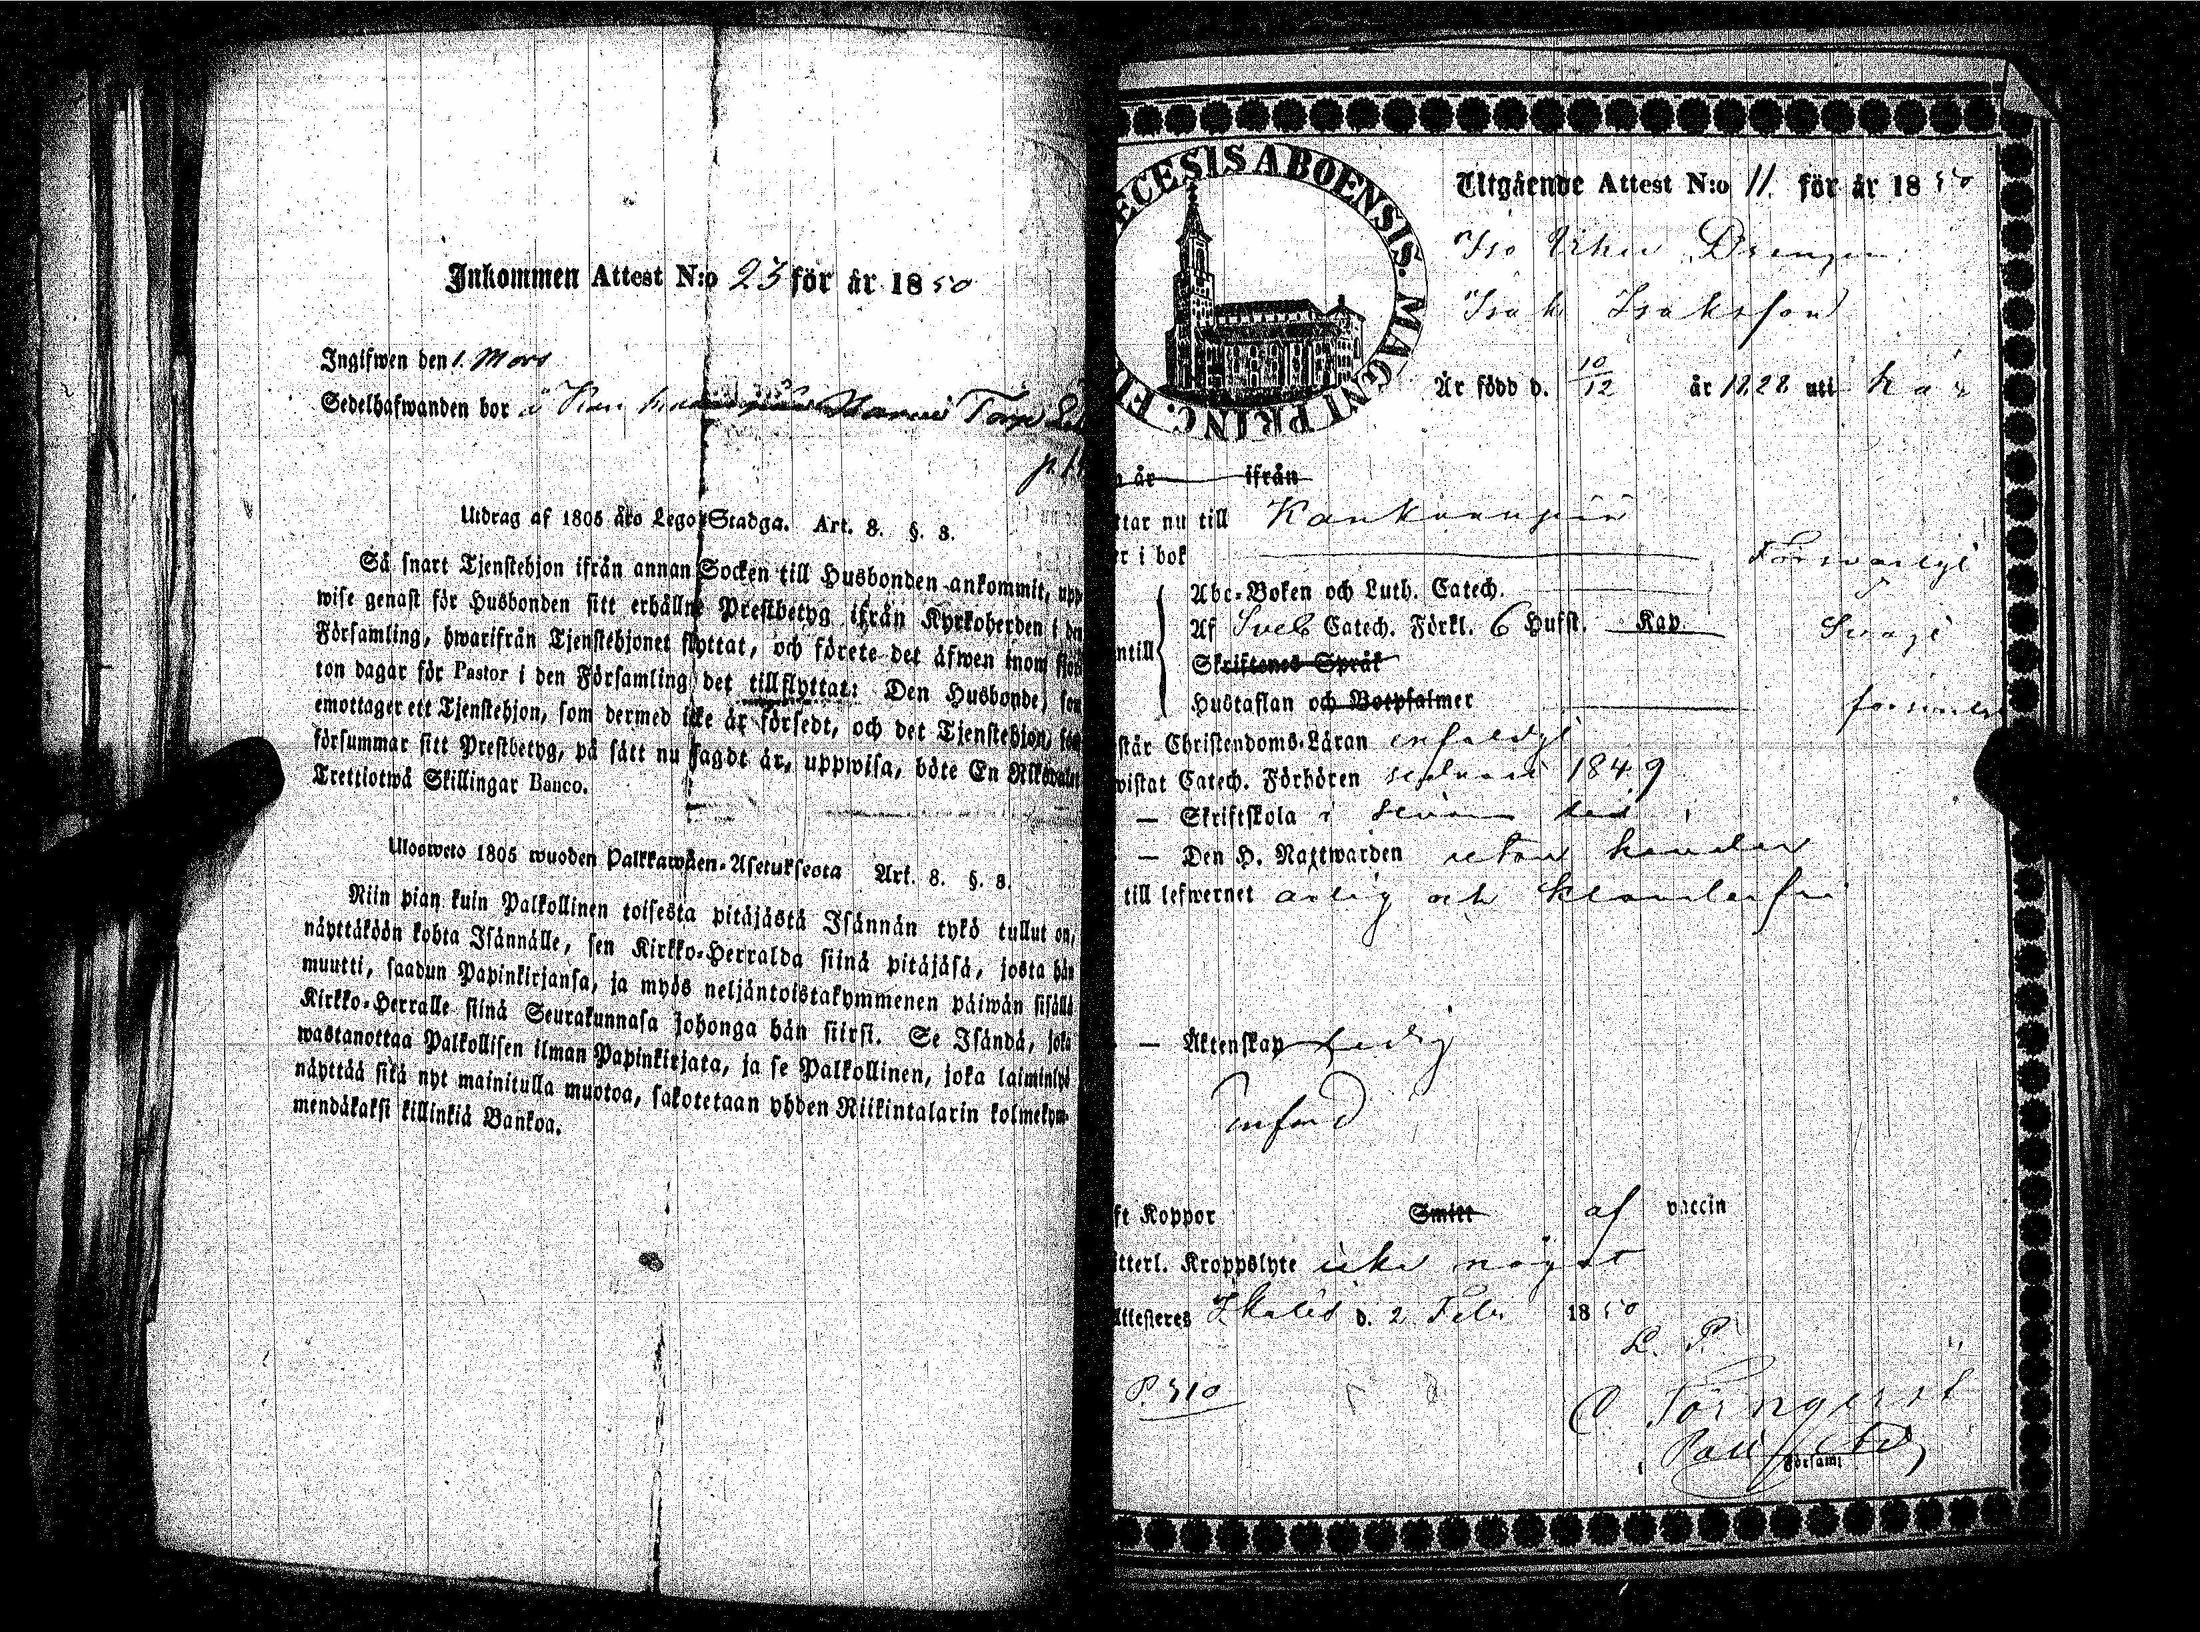 Inkommen Attest N:o 23 för år 1850
Ingifwen den 1. Mars
Sedelhafwanden bor å Torp
Utdrag af 1805 års Lego-Stadga. Art. 8. §. 3.
Så snart Tjenstehjon ifrån annan Socken till Husbonden ankommit, upp
wise genast för Husbonden sitt erhållne Prestbetyg ifrån Kyrkoherden i den
Församling, hwarifrån Tjenstehjonet flyttat, och förete det äfwen inom fjor
ton dagar för Pastor i den Församling det tillflyttat: Den Husbonde, som
emottager ett Tjenstehjon, som dermed icke är försedt, och det Tjenstehjon, som
försummar sitt Prestbetyg, på sätt nu sagdt är, uppwisa, böte En Riksdaler
Trettiotwå Skillingar Banco.
Ulosweto 1805 wuoden Palkkawäen-Asetuksesta Art. 8. §. 3.
Niin pian kuin Palkollinen toisesta pitäjästä Isännän tykö tullut on,
näyttäköön kohta Isännälle, sen Kirkko-Herralda siinä pitäjäsä, josta hän
muutti, saadun Papinkirjansa, ja myös neljäntoistakymmenen päiwän sisällä
Kirkko-Herralle siinä Seurakunnasa johonga hän siirsi. Se Isändä, joka
wastanottaa Palkollisen ilman Papinkirjata, ja se Palkollinen, joka laiminlyö
näyttää sitä nyt mainitulla muotoa, sakotetaan yhden Riikintalarin kolmekym-
mendäkaksi killinkiä Bankoa.
ECESIS ABOENSIS. MAGNI PRINC. FI
Utgående Attest N:o 11. för år 1850
Drengen
Isak Isaksson
Är född d. 10/12 år 1828 uti
år ifrån
ttar nu till Kankaanpää
er i bok Försvarligt
Abc-Boken och Luth. Catech.
Af Sveb Catech. Förkl. 6 Hufst. Kap. Svagt
ntill
Skriftenes Språk
Hustaflan och Botpsalmer
står Christendoms-Läran enfaldigt
wistat Catech. Förhören sednast 1849
— Skriftskola i
— Den H. Nattwarden utan hinder
till lefwernet ärlig och klanderfri
— Äktenskap Ledig
Införd
ft Koppor Smitt af vaccin
tterl. Kroppslyte icke något
Attesteres Ikalis d. 2 Febr 1850
P. 310
Församl